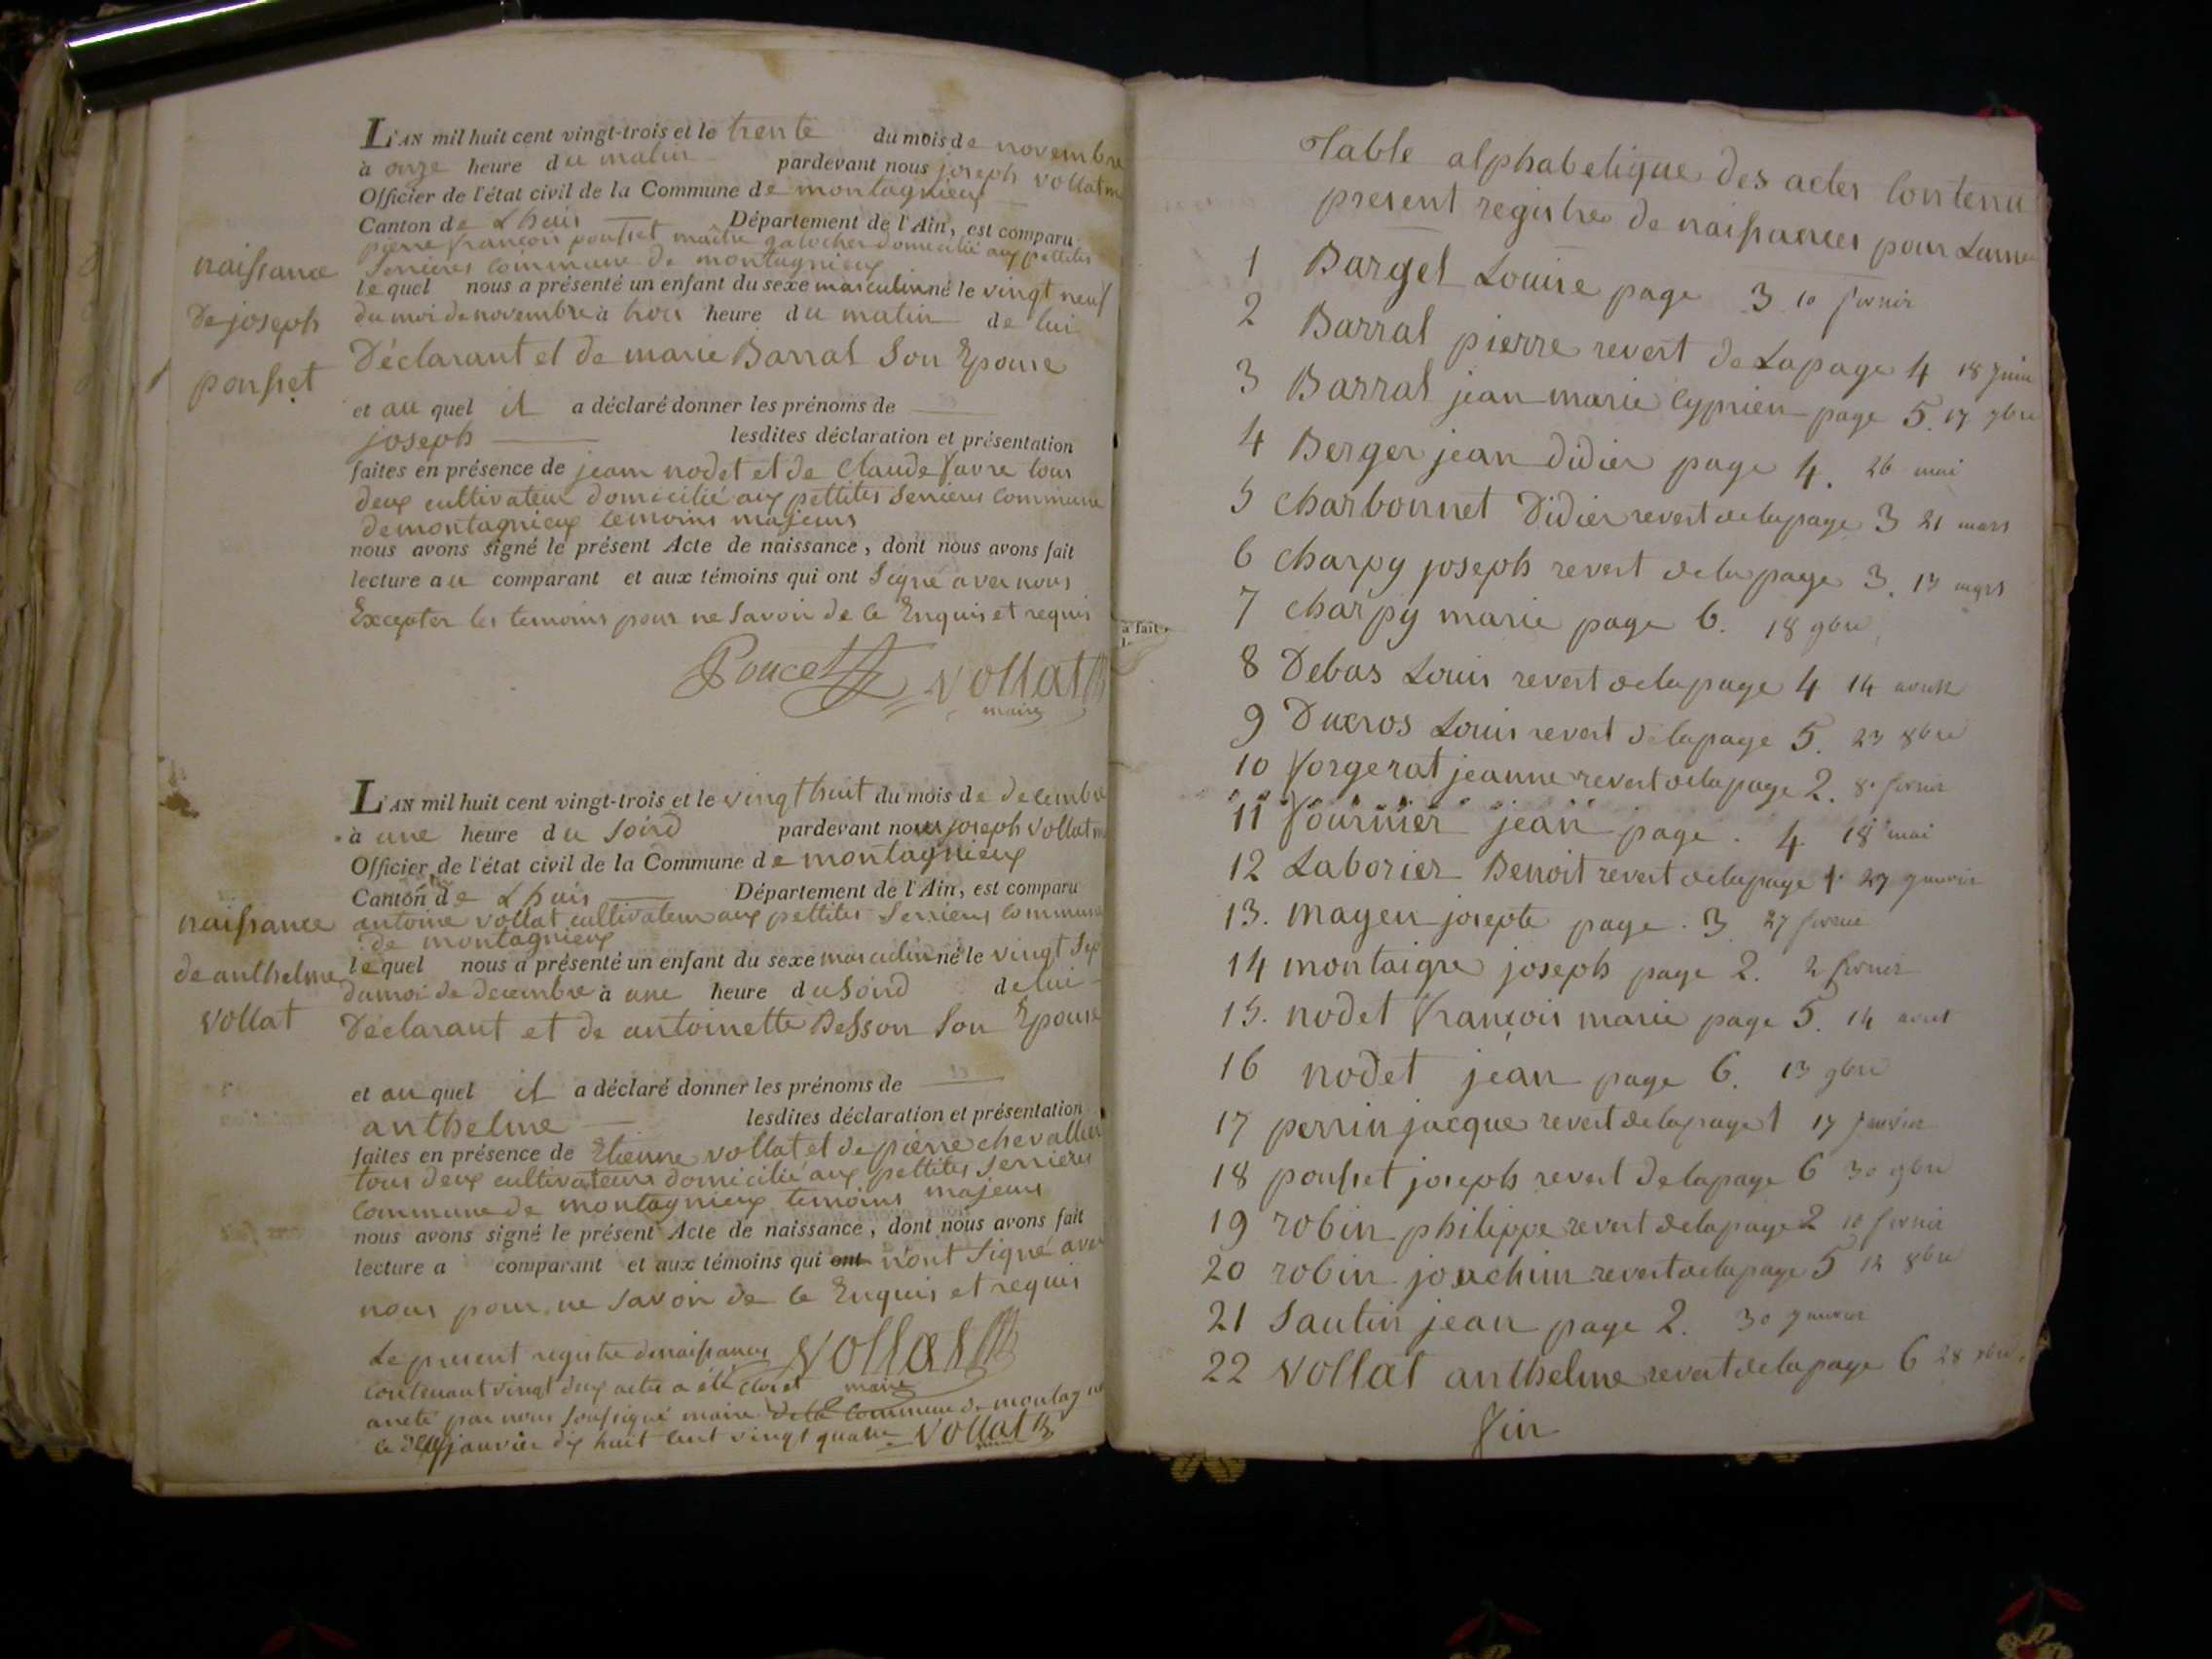 L'AN mil huit cent vingt-trois et le trente du mois de novembre
à onze heure du matin pardevant nous joseph vollat
Officier de l'état civil de la Commune de montagnieux
Canton de Lhuis Département de l'Ain, est comparu
pierre françois pousset maitre galocher domicilié aux pettites
Serrieres commune de montagnieux
lequel nous a présenté un enfant du sexe masculin né le vingt neuf
du moi de novembre à trois heure du matin de lui
Déclarant et de marie Barral Son Epouse
et au quel il a déclaré donner les prénoms de
joseph lesdites déclaration et présentation
faites en présence de jean nodet et de Claude favre tous
deux cultivateur domicilié aux pettites Serrieres commune
de montagnieux temoins majeurs
nous avons signé le présent Acte de naissance, dont nous avons fait
lecture au comparant et aux témoins qui ont Signé avec nous
Excepter les temoins pour ne Savoir de ce Enquis et requis
Poucet vollat
maire
naissance
de joseph
pousset
L'AN mil huit cent vingt-trois et le vingt huit du mois de decembre
à une heure du Soird pardevant nous joseph vollat
Officier de l'état civil de la Commune de montagnieux
Canton de Lhuis Département de l'Ain, est comparu
antoine vollat cultivateur aux pettites Serrieres commune
de montagnieux
lequel nous a présenté un enfant du sexe masculin né le vingt Sep
du moi de decembre à une heure du Soird de lui
Déclarant et de antoinette Besson Son Epouse
et au quel il a déclaré donner les prénoms de
anthelme lesdites déclaration et présentation
faites en présence de Etienne vollat et de pierre chevallier
tous deux cultivateurs domicilié aux pettites Serrieres
commune de montagnieux temoins majeurs
nous avons signé le présent Acte de naissance, dont nous avons fait
lecture a comparant et aux témoins qui ont n'ont Signé avec
nous pour ne Savoir de ce Enquis et requis
Le present registre de naissances vollat
contenant vingt deux actes a été clos et maire
arreté par nous Soussigné maire de la Commune de montag
le janvier dix huit cent vingt quatre vollat
maire
naissance
de anthelme
vollat
a fait
Table alphabetique des actes Contenu
present registre de naissances pour Lanne
1 Bargel Louise page 3 10 fevrier
2 Barral pierre revert de Lapage 4 18 Juin
3 Barral jean marie Cyprien page 5. 17 9bre
4 Berger jean Didier page 4. 26 mai
5 Charbonnet Didier revert de lapage 3 21 mars
6 Charpy joseph revert de lapage 3. 13 mars
7 Charpy marie page 6. 18 9bre
8 Debas Louis revert de lapage 4 14 avril
9 Ducros Louis revert de lapage 5. 23 8bre
10 forgerat jeanne revert de lapage 2. 8 fevrier
11 fournier jean page . 4 18 mai
12 Laborier Benoit revert de lapage 1 27 janvier
13. mayen josepte page . 3 27 fevrier
14 montaigre joseph page 2. 2 fevrier
15. nodet françois marie page 5. 14 aout
16 nodet jean page 6. 13 9bre
17 perrin jacque revert de lapage 1 17 janvier
18 pousset joseph revert de lapage 6 30 9bre
19 robin philippe revert de lapage 2 10 fevrier
20 robin joachim revert de lapage 5 12 8bre
21 Sautin jean page 2. 30 janvier
22 vollat anthelme revert de lapage 6 28 xbre.
fin